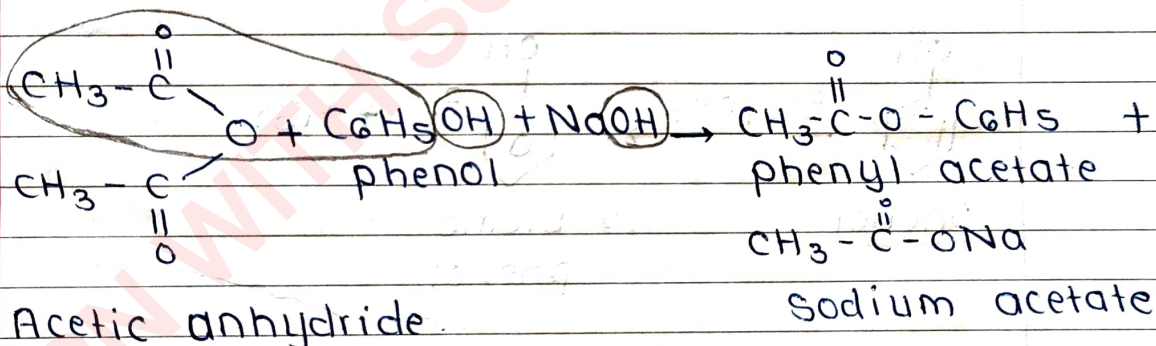 O O
|| ||
CH3 - C
O + C6H5OH + NaOH → CH3 - C - O - C6H5 +
CH3 - C phenol phenyl acetate
|| O
O ||
CH3 - C - ONa
Acetic anhydride. sodium acetate